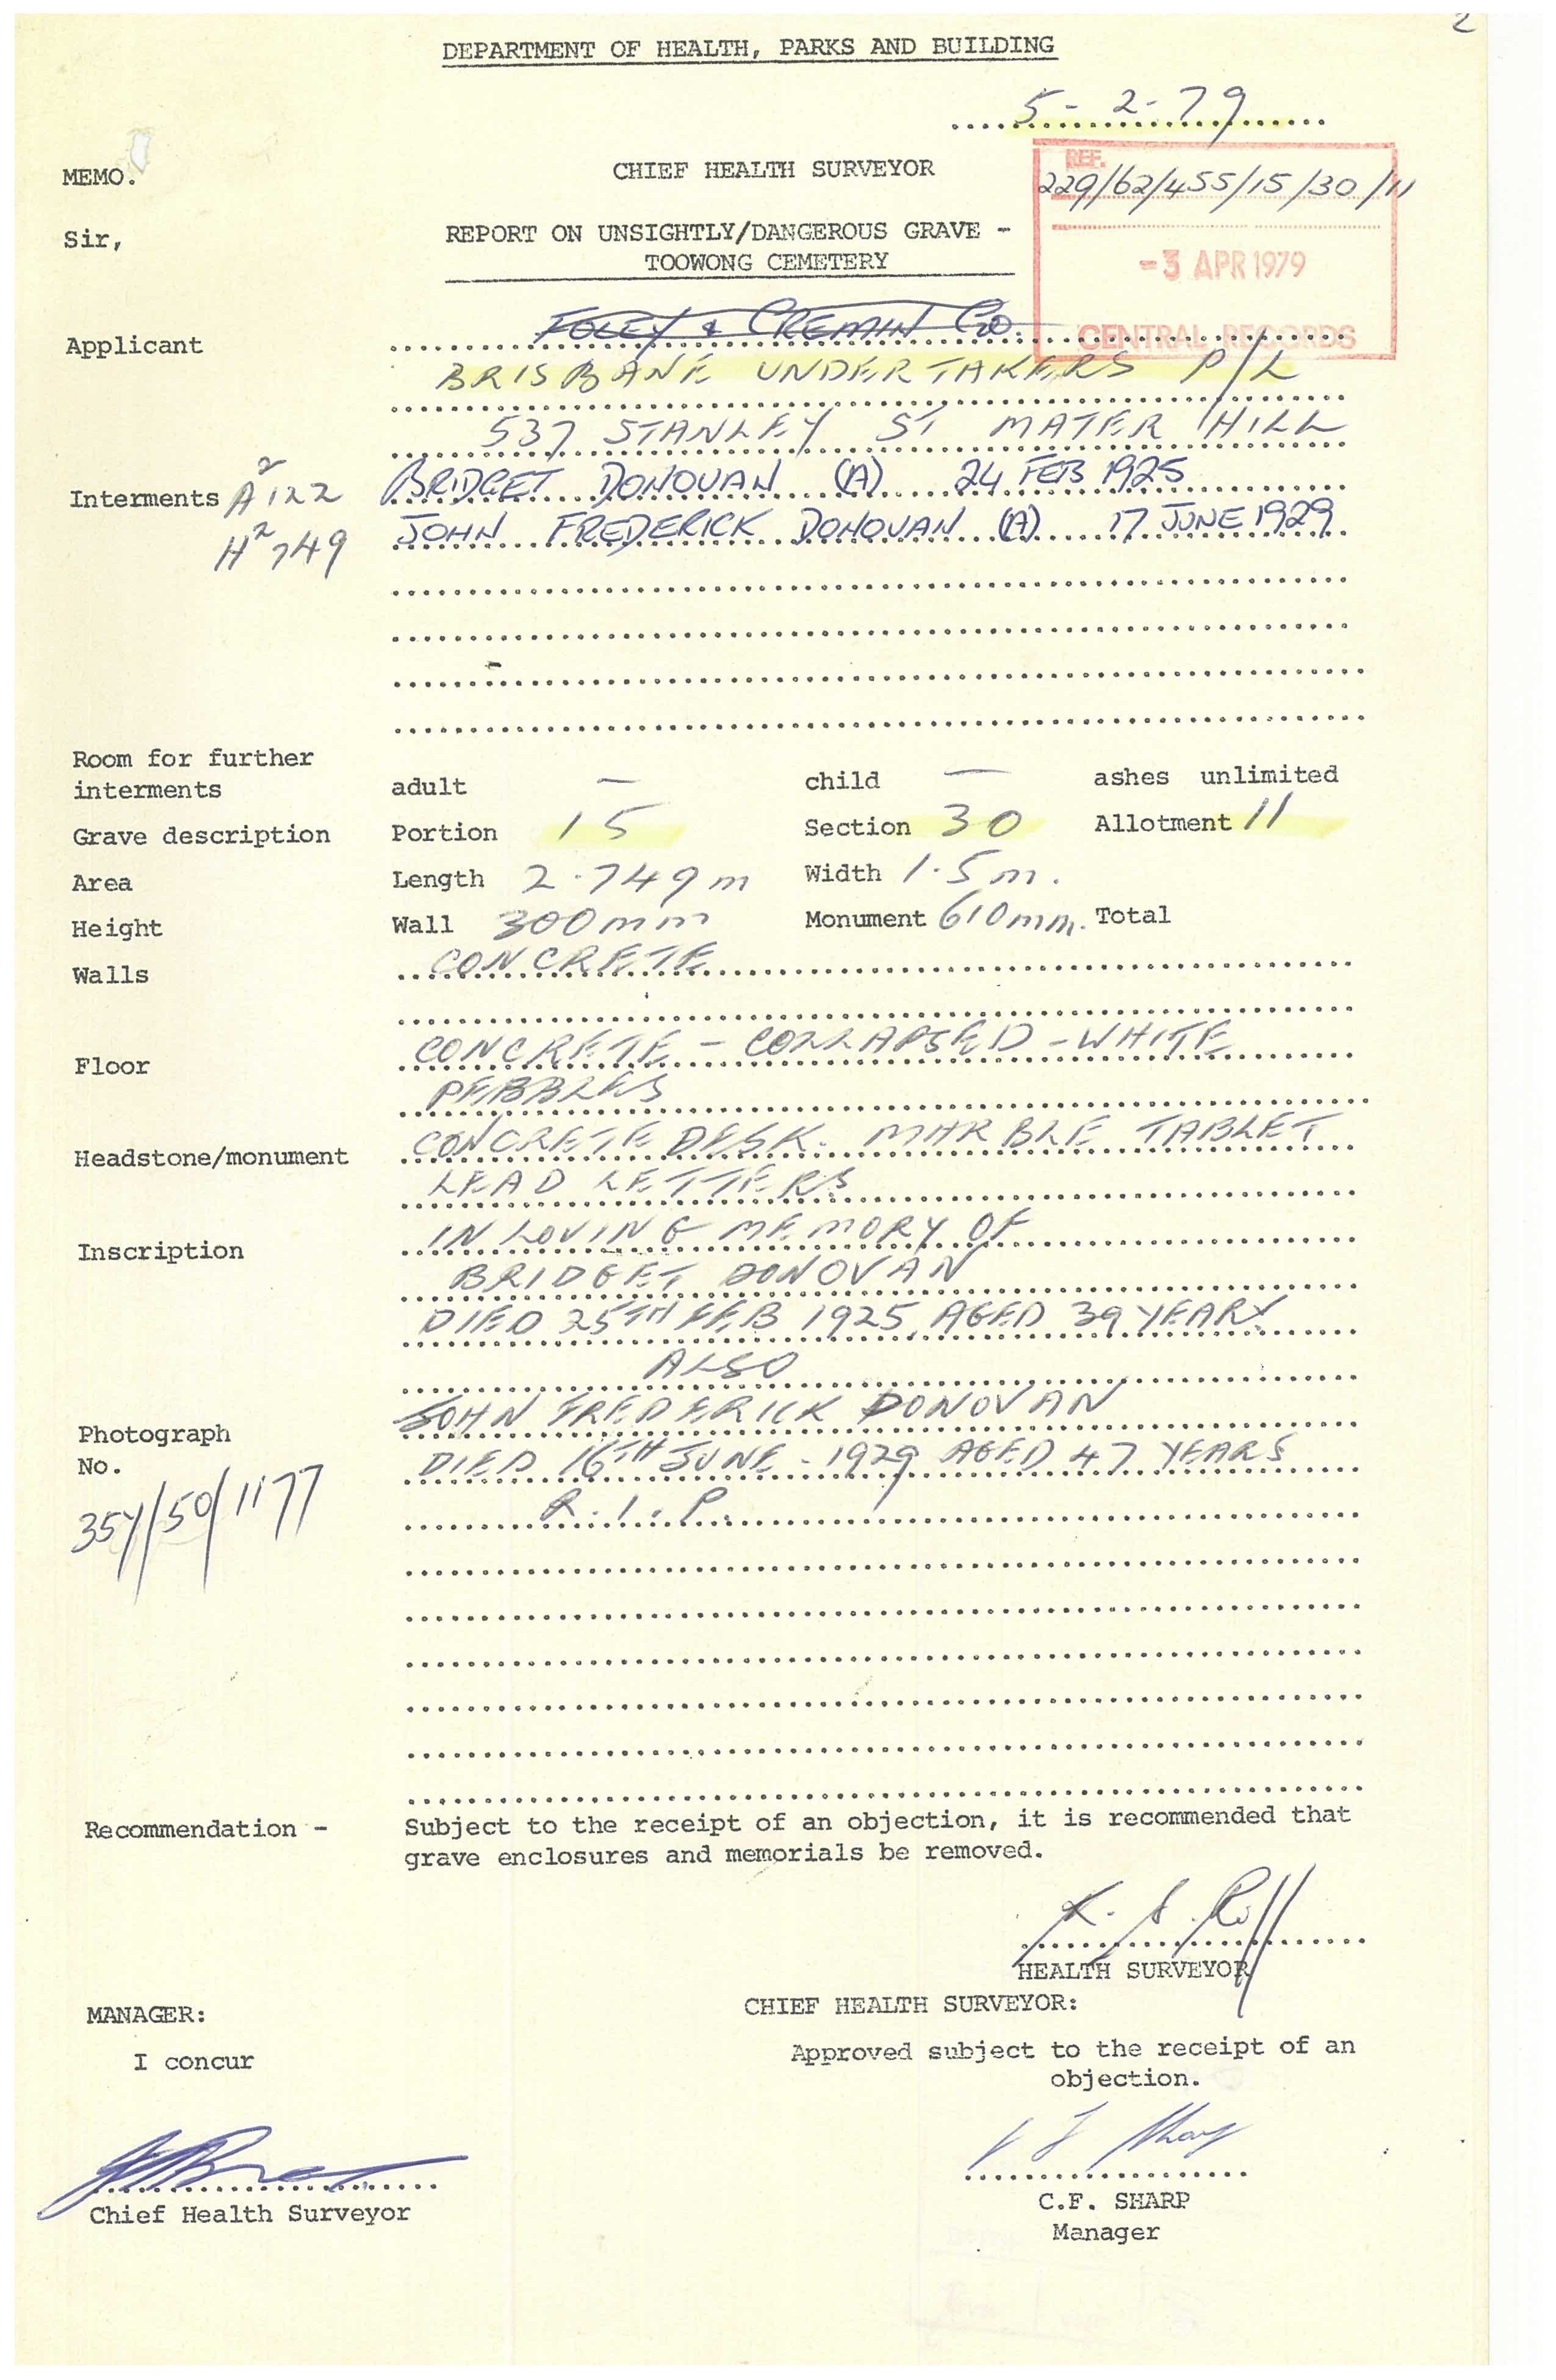 2
DEPARTMENT OF HEALTH, PARKS AND BUILDING
5-2-79
MEMO.
CHIEF HEALTH SURVEYOR
REF.
229/62/455/15/30/11
Sir,
REPORT ON UNSIGHTLY/DANGEROUS GRAVE -
TOOWONG CEMETERY
-3 APR 1979
CENTRAL RECORDS
Applicant FOLEY & CREMIN Co.
BRISBANE UNDERTAKERS P/L
537 STANLEY ST MATER HILL
Interments A2 122 BRIDGET DONOVAN (A) 24 FEB 1925
H2 749 JOHN FREDERICK DONOVAN (A) 17 JUNE 1929
Room for further
interments adult — child — ashes unlimited
Grave description Portion 15 Section 30 Allotment 11
Area Length 2.749m Width 1.5m.
Height Wall 300mm Monument 610mm. Total
Walls CONCRETE
Floor CONCRETE - COLLAPSED - WHITE
PEBBLES
Headstone/monument CONCRETE DESK. MARBLE TABLET
LEAD LETTERS
Inscription IN LOVING MEMORY OF
BRIDGET DONOVAN
DIED 25TH FEB 1925 AGED 39 YEARS
ALSO
JOHN FREDERICK DONOVAN
Photograph
No. DIED 16TH JUNE - 1929 AGED 47 YEARS
R.I.P.
35Y/50/1177
Recommendation - Subject to the receipt of an objection, it is recommended that
grave enclosures and memorials be removed.
HEALTH SURVEYOR
MANAGER: CHIEF HEALTH SURVEYOR:
I concur Approved subject to the receipt of an
objection.
Chief Health Surveyor C.F. SHARP
Manager